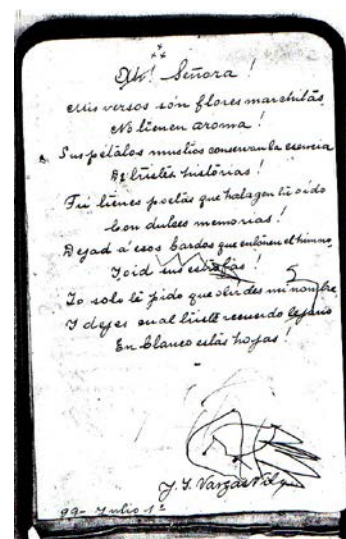 Oh! Señora!
Mis versos són flores marchitás
No tienen aroma!
Sus pétalos mustios conservan la esencia
De tristes histórias!
Tu tienes poetás que halagen tu oido
Con dulces memorias!
Dejad á esos bardos que entonen el himno,
Y oid sus estrofas!
Yo solo te pido que olvides mi nombre
Y dejes cual triste recuerdo lejano
En blanco estás hojas!
J. M. Vargas Vila
99- Julio 1º